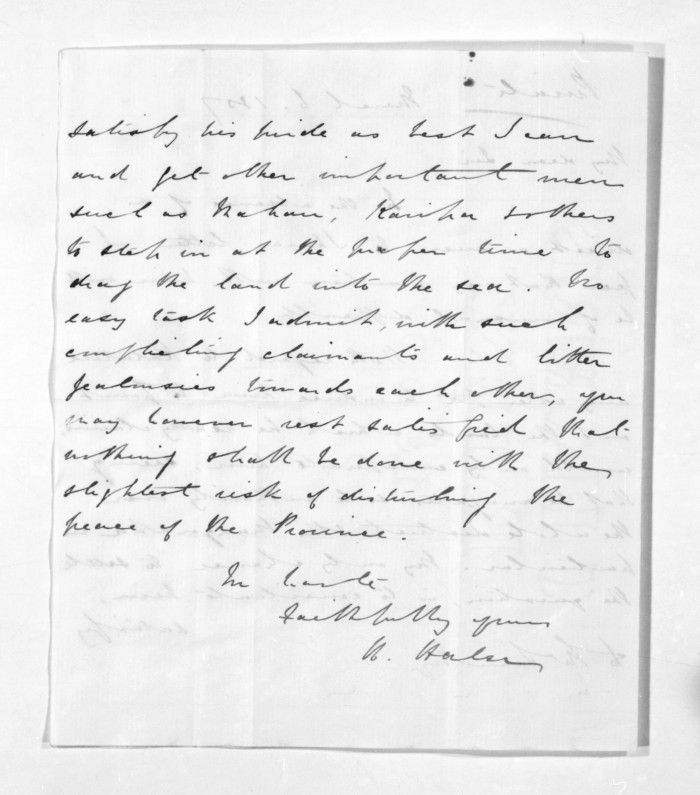 satisfy his pride as best I can
and get other important men
such as Mahau, Karira & others
to step in at the proper time to
drag the land into the sea. No
easy task I admit, with such
conflicting claimants and bitter
jealousies towards each other, you
may however rest satisfied that
nothing shall be done with the
slightest risk of disturbing the
peace of the Province.
In haste
Faithfully yours
H. Halse